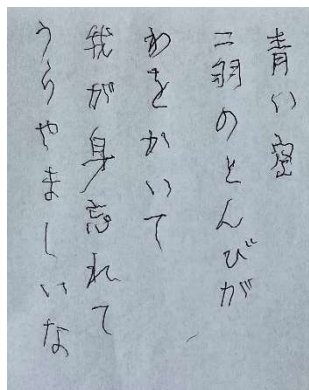 青い空
二羽のとんびが
わをかいて
我が身忘れて
うらやましいな